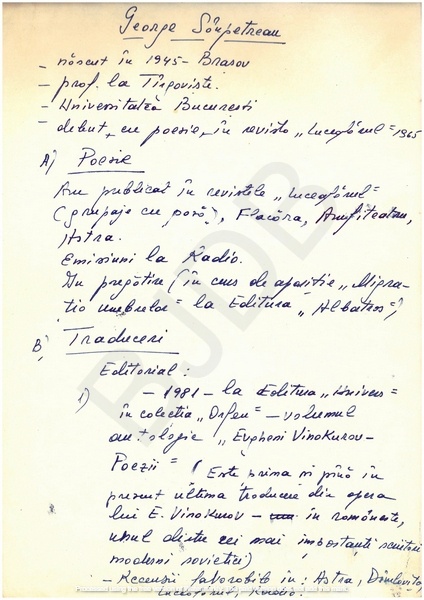 George Sînpetrean
- născut în 1945 - Brașov
- prof. la Tîrgoviste.
- Universitatea Bucuresti
- debut, cu poesie, în revista „Luceafărul" 1965
A) Poesie
Am publicat în revistele „Luceafărul"
(grupaje cu poză), Flacăra, Amfiteatru,
Astra.
Emisiuni la Radio.
In pregătire (în curs de apositie „Migra-
tia umbrelor" la Editura „Albatros")
B) Traduceri
Editorial:
1) - 1981 - la Editura „Univers"
în colectia „Orfeu" - volumul
antologic „Evgheni Vinokurov -
Poezii" (Este prima si pînă în
present ultima traducere din opera
lui E. Vinokurov - în româneste,
unul dintre cei mai importanti scriitori
moderni sovietici)
- Recenzii favorabile în: Astra, Dîmbovita,
Luceafărul, Radio.
BJDB